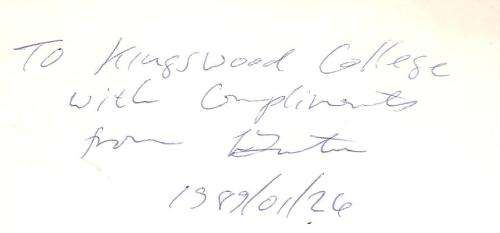 To Kingswood College
with Compliments
from
1989/01/26